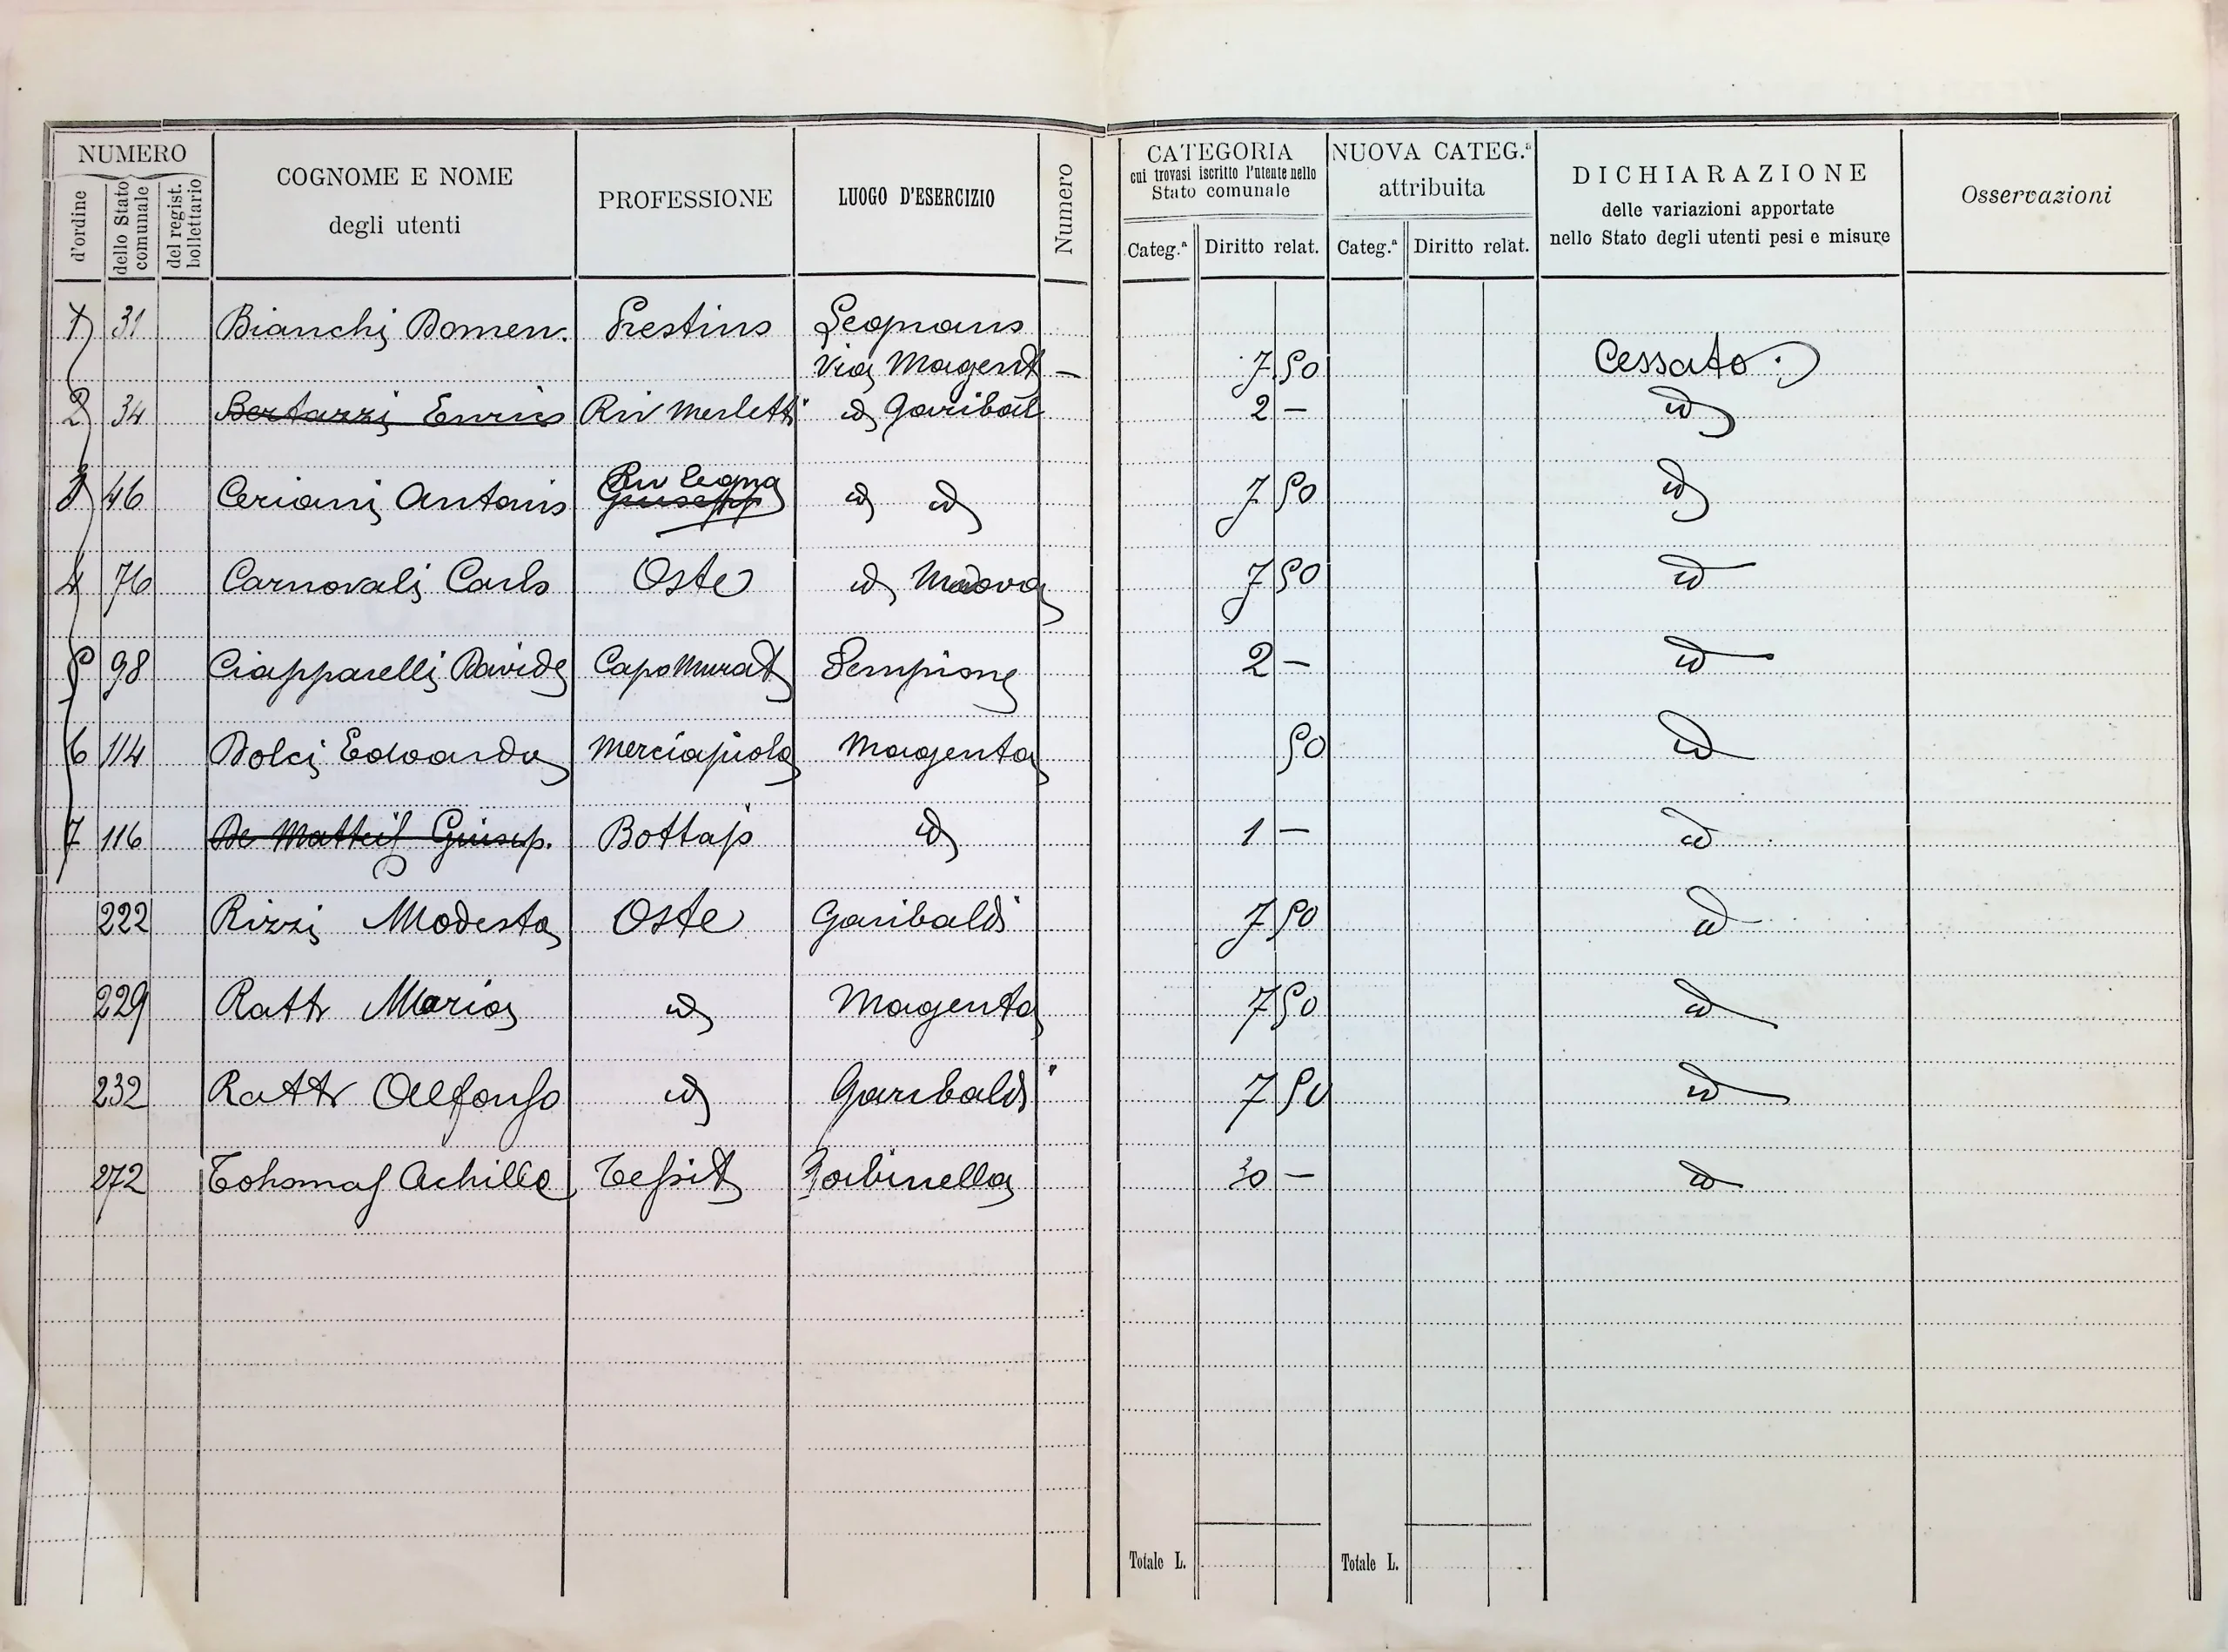 NUMERO
d'ordine
dello Stato comunale
del regist. bollettario
COGNOME E NOME
degli utenti
PROFESSIONE
LUOGO D'ESERCIZIO
Numero
CATEGORIA
cui trovasi iscritto l'utente nello
Stato comunale
Categ.ª Diritto relat.
NUOVA CATEG.ª
attribuita
Categ.ª Diritto relat.
DICHIARAZIONE
delle variazioni apportate
nello Stato degli utenti pesi e misure
Osservazioni
1 31 Bianchi Domen. Prestino Legnano
Via Magenta — 7 50 Cessato
2 34 Bertazzi Enrico Riv Merletti id Garibal 2 — id
3 46 Ceriani Antonio Riv Legna Giusepp id id 7 50 id
4 76 Carnovali Carlo Oste id 7 50 id
5 98 Ciapparelli Davide Capo Murat Sempione 2 — id
6 114 Dolci Edoardo Merciajuolo Magenta 50 id
7 116 De Matteis Giusep. Bottajo id 1 — id
222 Rizzi Modesta Oste Garibaldi 7 50 id
229 Ratti Maria id Magenta 7 50 id
232 Ratti Alfonso id Garibaldi 7 50 id
272 Achille Tessit 30 — id
Totale L. Totale L.